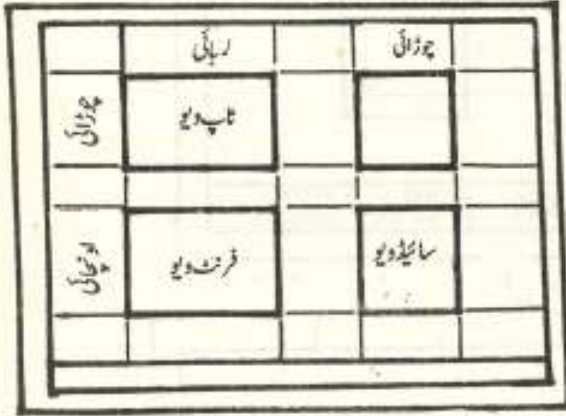 لمبائی چوڑائی
چوڑائی ٹاپ ویو
اونچائی فرنٹ ویو سائیڈ ویو